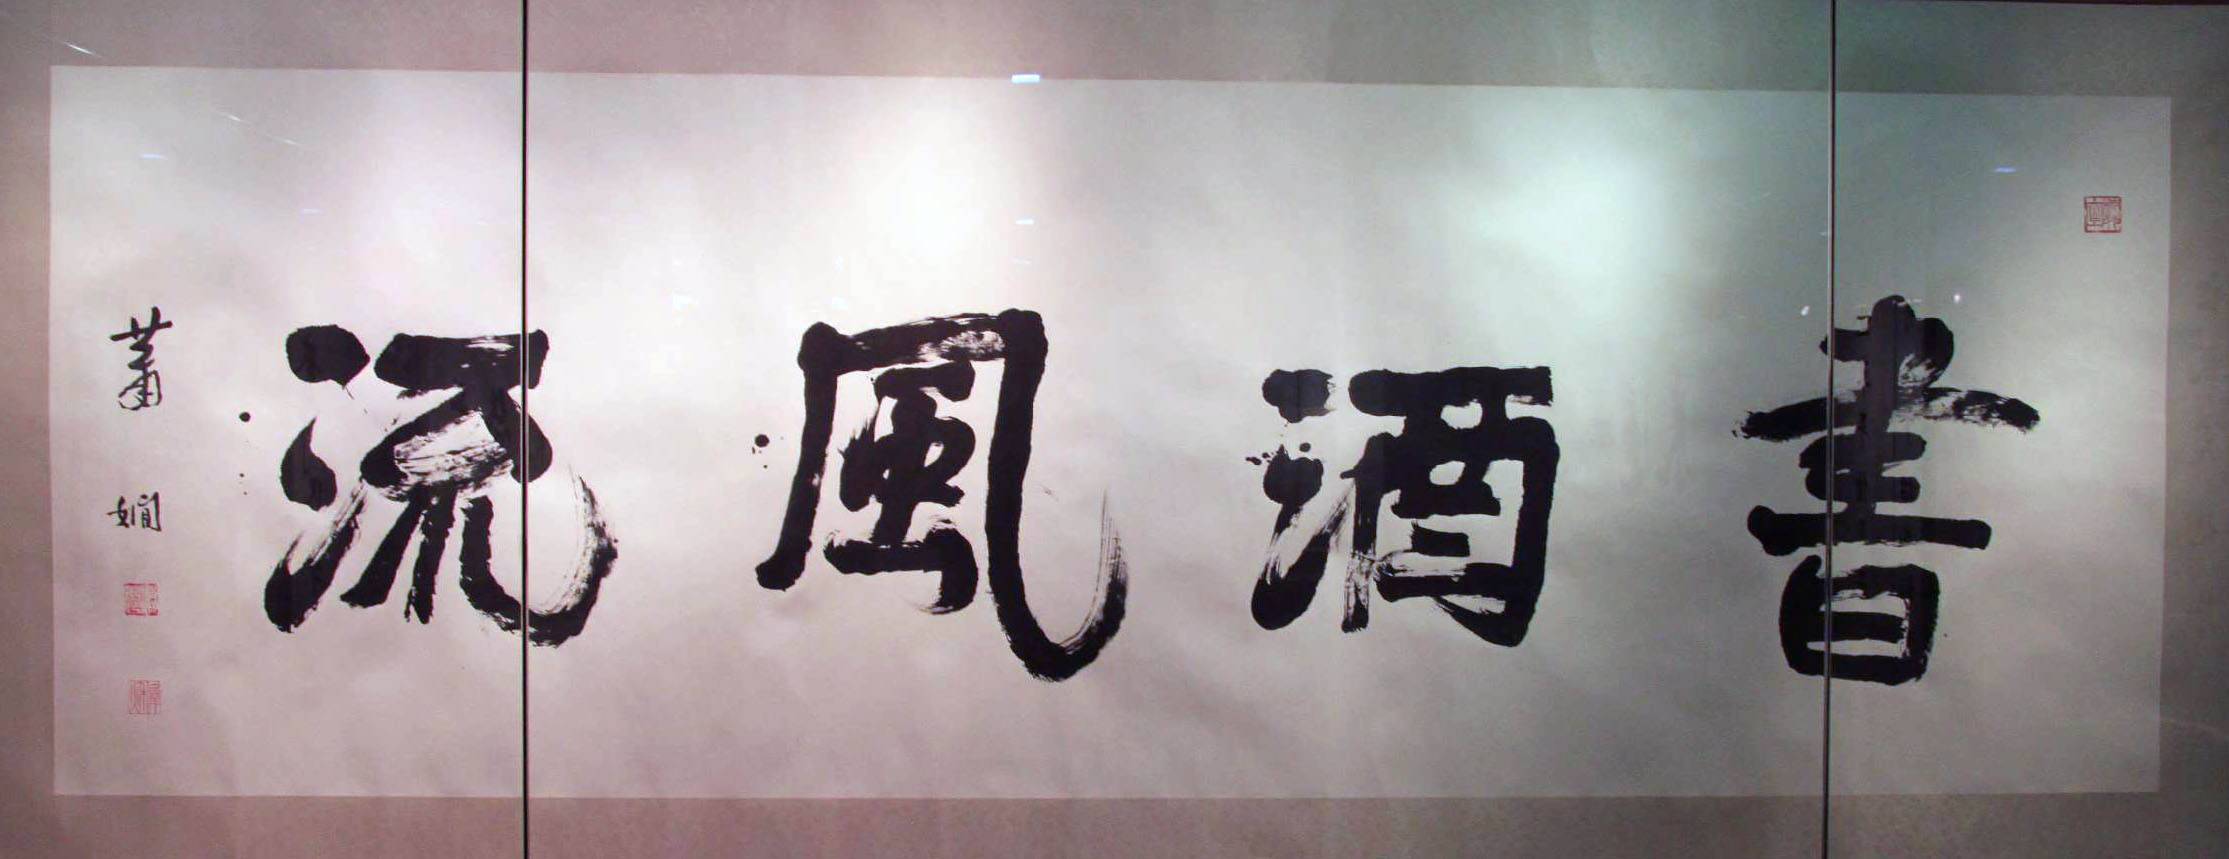 書酒風流
蕭嫺